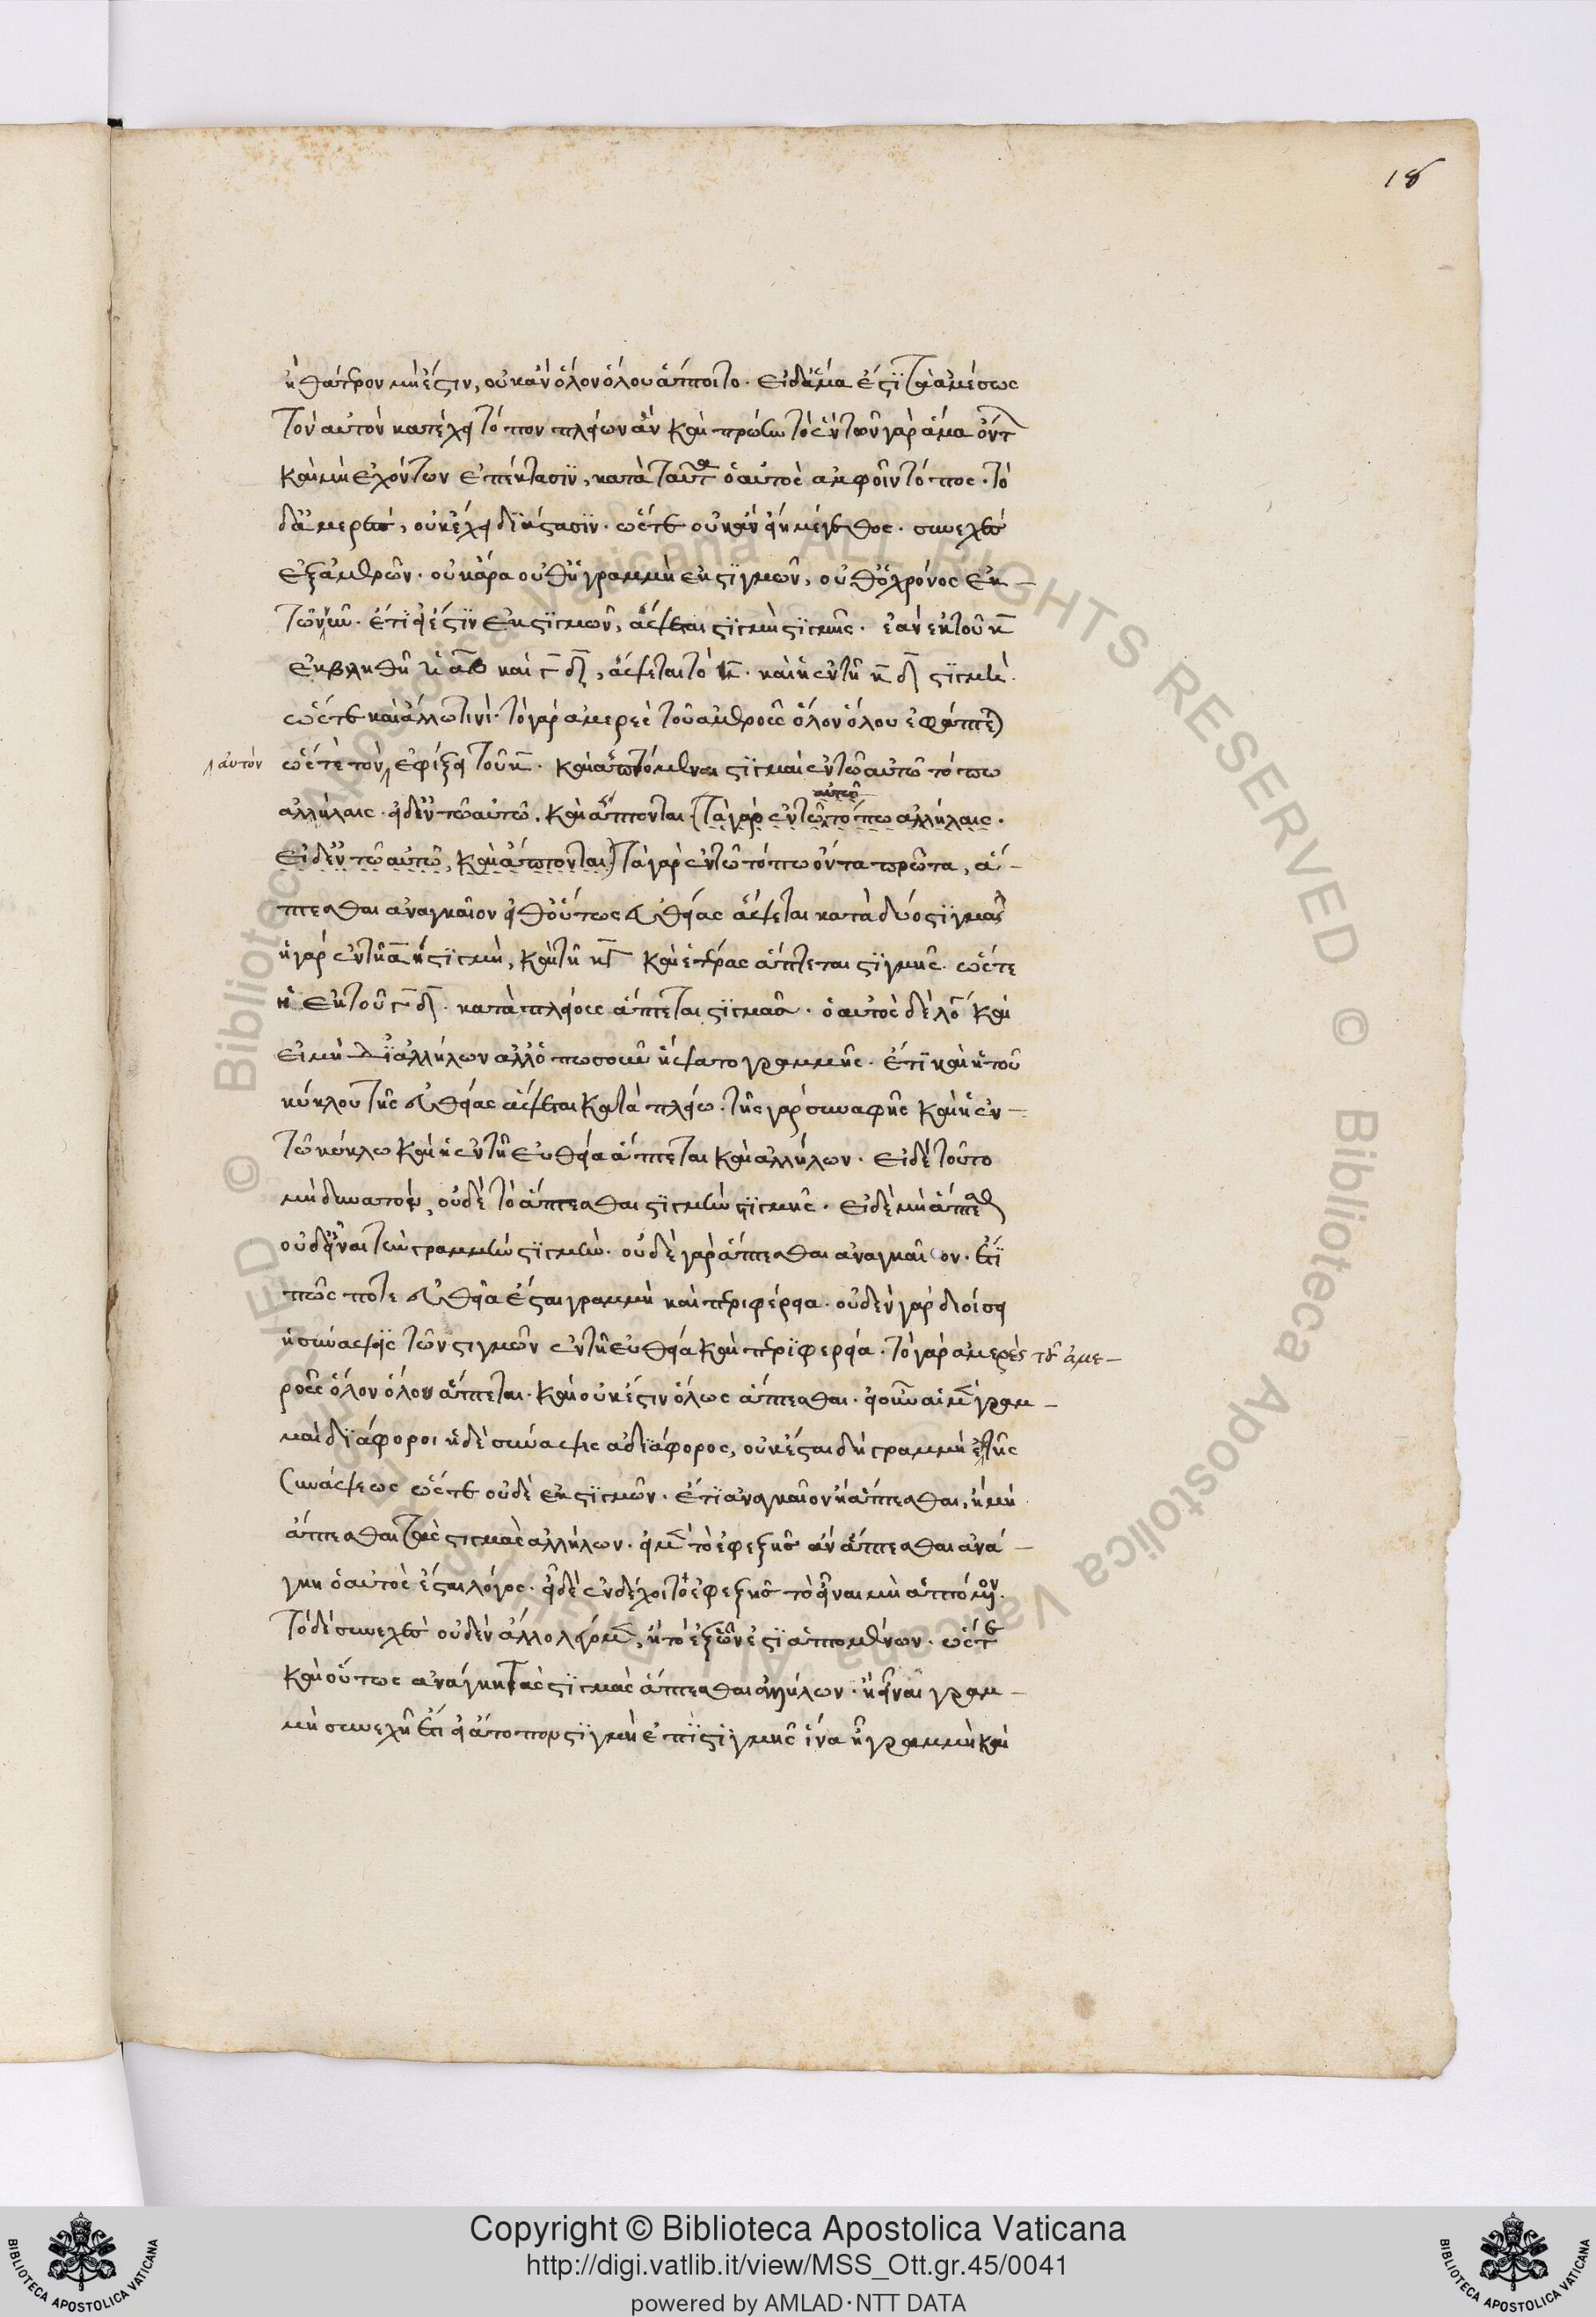 18
ἢ θάτερον μή ἐστιν, οὐκ ἂν ὅλον ὅλου ἅπτοιτο. εἰ δ' ἅμα ἐστὶ τὰ ἀμέσως
τὸν αὐτὸν κατέχει τόπον πλείων ἂν καὶ πρώτω τὸ ἓν τῶν γὰρ ἅμα ὄντ
καὶ μὴ ἐχόντων ἐπέκτασιν, κατὰ ταυτα ὁ αὐτὸς ἀμφοῖν τόπος. τὸ
δ' ἀμερὲς, οὐκ ἔχει διάστασιν. ὥστε οὐκ ἂν εἴη μέγεθος. συνεχὲς
ἐξ ἀμερῶν. οὐκ ἄρα οὔθ' ἡ γραμμὴ ἐκ στιγμῶν, οὔθ' ὁ χρόνος ἐκ
τῶν νῦν. ἔτι εἰ ἔστιν ἐκ στιγμῶν, ἅψεται στιγμὴ στιγμῆς. ἐὰν ἐκ τοῦ κ
ἐκβληθῆ ἡ αβ καὶ γ δ, ἅψεται τὸ κ. καὶ ἡ ἐν τῆ κ δ στιγμὴ.
ὥστε καὶ ἀλλω τινί. τὸ γὰρ ἀμερὲς τοῦ ἀμεροῦς ὅλον ὅλου ἐφάπτε
αὐτὸν ὥστε τὸν ἐφέξει τοῦ κ. καὶ ἁπτόμεναι στιγμαὶ ἐν τῶ αὐτῶ τόπω
αὐτῶ
ἀλλήλαις. εἰ δ' ἐν τῶ αὐτῶ. καὶ ἅπτονται. [τὰ γὰρ ἐν τῶ τόπω ἀλλήλαις.
εἰ δ' ἐν τῶ αὐτῶ, καὶ ἅπτονται] τὰ γὰρ ἐν τῶ τόπω ὄντα πρῶτα, ἅ-
πτεσθαι ἀναγκαῖον εἰ δ' οὕτως εὐθείας ἅψεται κατὰ δύο στιγμας
ἡ γὰρ ἐν τῆ α η στιγμὴ, καὶ τῆ κγ καὶ ἑτέρας ἅπτεται στιγμῆς. ὥστε
ἡ ἐκ τοῦ γ δ. κατὰ πλείους ἅπτεται στιγμας. ὁ αὐτὸς δὲ λό καὶ
εἰ μὴ δι' ἀλλήλων ἀλλ' ὁπωσοῦν ἥψατο γραμμῆς. ἔτι καὶ ἡ τοῦ
κύκλου τῆς εὐθείας ἅψεται κατὰ πλείω. τῆς γὰρ συναφῆς καὶ ἡ ἐν
τῶ κύκλω καὶ ἡ ἐν τῆ εὐθεία ἅπτεται καὶ ἀλλήλων. εἰ δὲ τοῦτο
μὴ δυνατόν, οὐδὲ τὸ ἅπτεσθαι στιγμὴν στιγμῆς. εἰ δὲ μὴ ἅπτεσθ
οὐδ' εἶναι τὴν γραμμὴν στιγμὴν. οὐδὲ γὰρ ἅπτεσθαι ἀναγκαῖον. ἔτι
πῶς ποτε εὐθεῖα ἔσται γραμμὴ καὶ περιφέρεια. οὐδὲν γὰρ διοίσει
ἡ σύναψις τῶν στιγμῶν ἐν τῆ εὐθεία καὶ περιφερεία. τὸ γὰρ ἀμερὲς τοῦ ἀμε-
ροῦς ὅλον ὅλου ἅπτεται. καὶ οὐκ ἔστιν ὅλως ἅπτεσθαι. εἰ οὖν αἱ μ γραμ-
μαὶ διάφοροι ἡ δὲ σύναψις ἀδιάφορος, οὐκ ἔσται δὴ γραμμὴ ἐκ τῆς
συνάψεως ὥστε οὐδὲ ἐκ στιγμῶν. ἔτι ἀναγκαῖον ἢ ἅπτεσθαι, ἢ μὴ
ἅπτεσθαι τὰς στιγμὰς ἀλλήλων. εἰ μ τὸ ἐφεξῆς ἂν ἅπτεσθαι ἀνά-
γκη ὁ αὐτὸς ἔσται λόγος. εἰ δὲ ἐνδέχοιτο ἐφεξῆς τὸ εἶναι μὴ ἁπτόμον.
τὸ δὲ συνεχὲς οὐδὲν ἄλλο λέγομ, ἢ τὸ ἐξ ὧν ἐστὶ ἁπτομένων. ὥστε
καὶ οὕτως ἀνάγκη τὰς στιγμὰς ἅπτεσθαι ἀλλήλων. ἢ εἶναι γραμ-
μὴ συνεχῆ ἔτι εἰ ἄτοπον στιγμὴ ἐπὶ στιγμῆς ἵνα ἦ γραμμὴ καὶ
© Biblioteca Apostolica Vaticana ALL RIGHTS RESERVED © Biblioteca Apostolica Vaticana ALL RIGHTS RESERVED
Copyright © Biblioteca Apostolica Vaticana
http://digi.vatlib.it/view/MSS_Ott.gr.45/0041
powered by AMLAD·NTT DATA
BIBLIOTECA APOSTOLICA VATICANA
BIBLIOTECA APOSTOLICA VATICANA